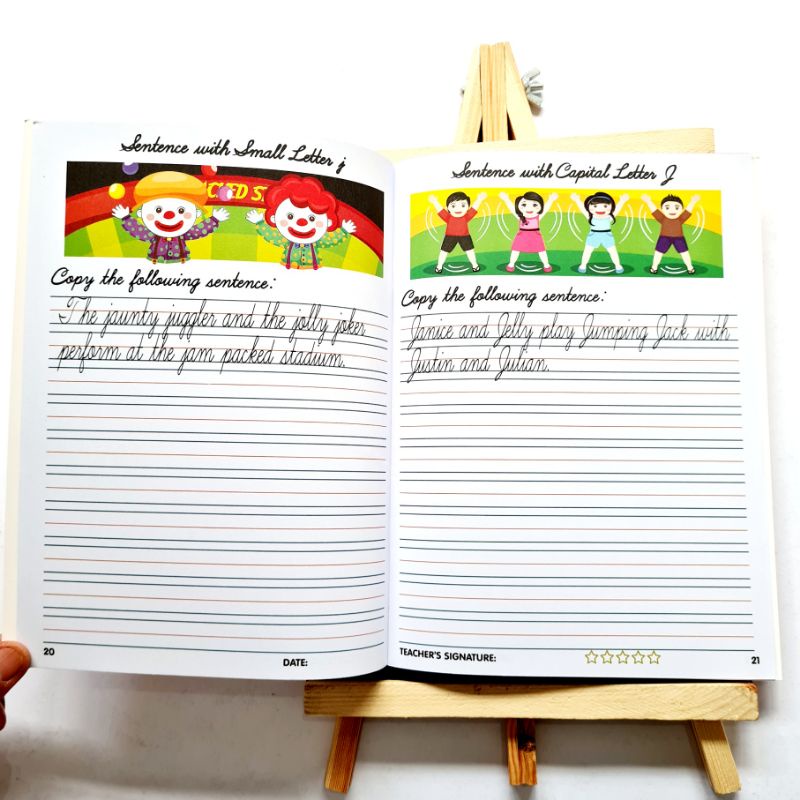 Sentence with Small Letter j
Copy the following sentence:
The jaunty juggler and the jolly joker
perform at the jam packed stadium.
20
DATE:
Sentence with Capital Letter J
Copy the following sentence:
Janice and Jelly play Jumping Jack with
Justin and Julian.
TEACHER'S SIGNATURE:
21